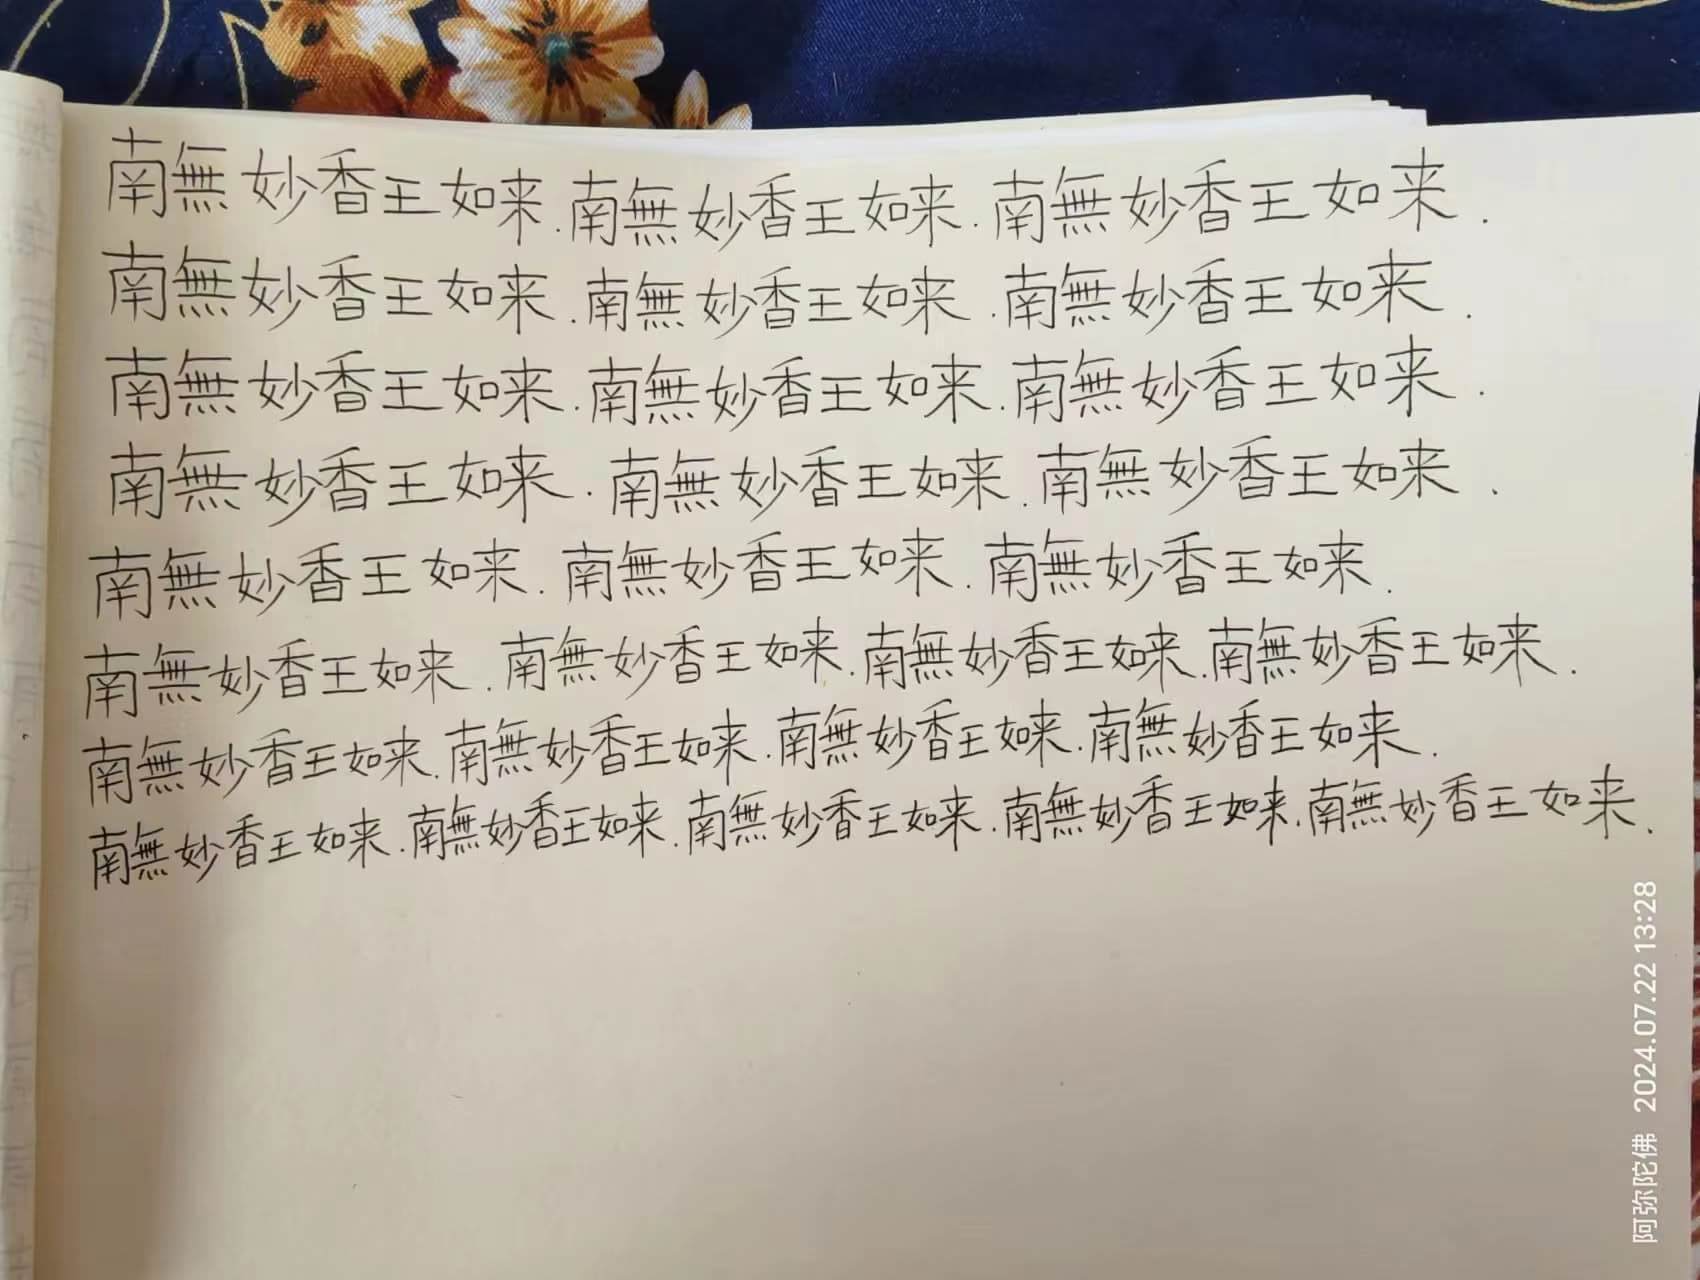 南無妙香王如来.南無妙香王如来.南無妙香王如来.
南無妙香王如来.南無妙香王如来.南無妙香王如来.
南無妙香王如来.南無妙香王如来.南無妙香王如来.
南無妙香王如来.南無妙香王如来.南無妙香王如来.
南無妙香王如来.南無妙香王如来.南無妙香王如来.
南無妙香王如来.南無妙香王如来.南無妙香王如来.南無妙香王如来.
南無妙香王如来.南無妙香王如来.南無妙香王如来.南無妙香王如来.
南無妙香王如来.南無妙香王如来.南無妙香王如来.南無妙香王如来.南無妙香王如来.
阿弥陀佛 2024.07.22 13:28